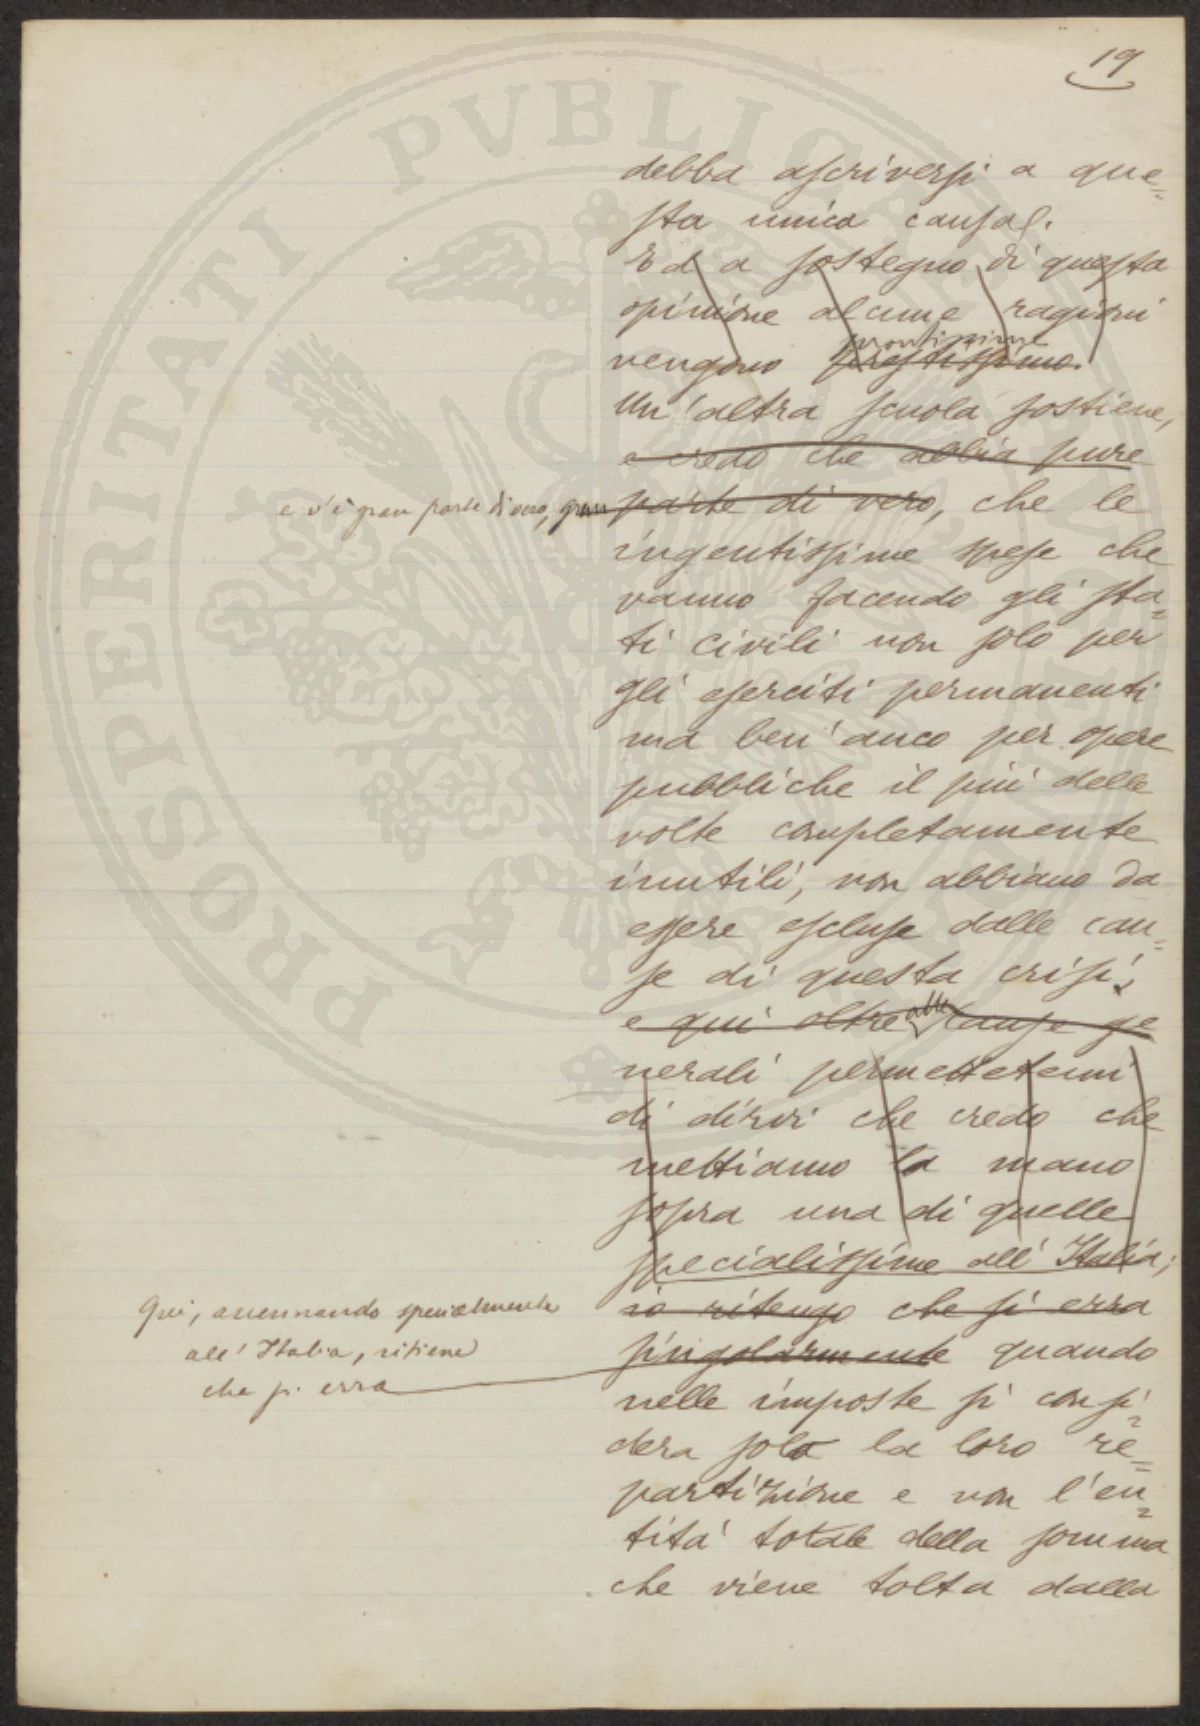 19
debba ascriversi a que=
sta unica causa.
Ed a sostegno di questa
opinione alcune ragioni
prontissime
vengono prestissimo.
Un'altra scuola sostiene,
e credo che abbia pure
e v'è gran parte di vero, gran parte di vero, che le
ingentissime spese che
vanno facendo gli sta=
ti civili non solo per
gli eserciti permanenti
ma ben'anco per opere
pubbliche il più delle
volte completamente
inutili, non abbiano da
essere escluse dalle cau=
se di questa crisi;
e qui oltre alle cause ge
nerali permettetemi
di dirvi che credo che
mettiamo la mano
sopra una di quelle
specialissime all'Italia;
Qui, accennando specialmente
all'Italia, ritiene
che si erra
io ritengo che si erra
singolarmente quando
nelle imposte si consi=
dera solo la loro re=
partizione e non l'en=
tità totale della somma
che viene tolta dalla
PROSPERITATI PVBLICAE